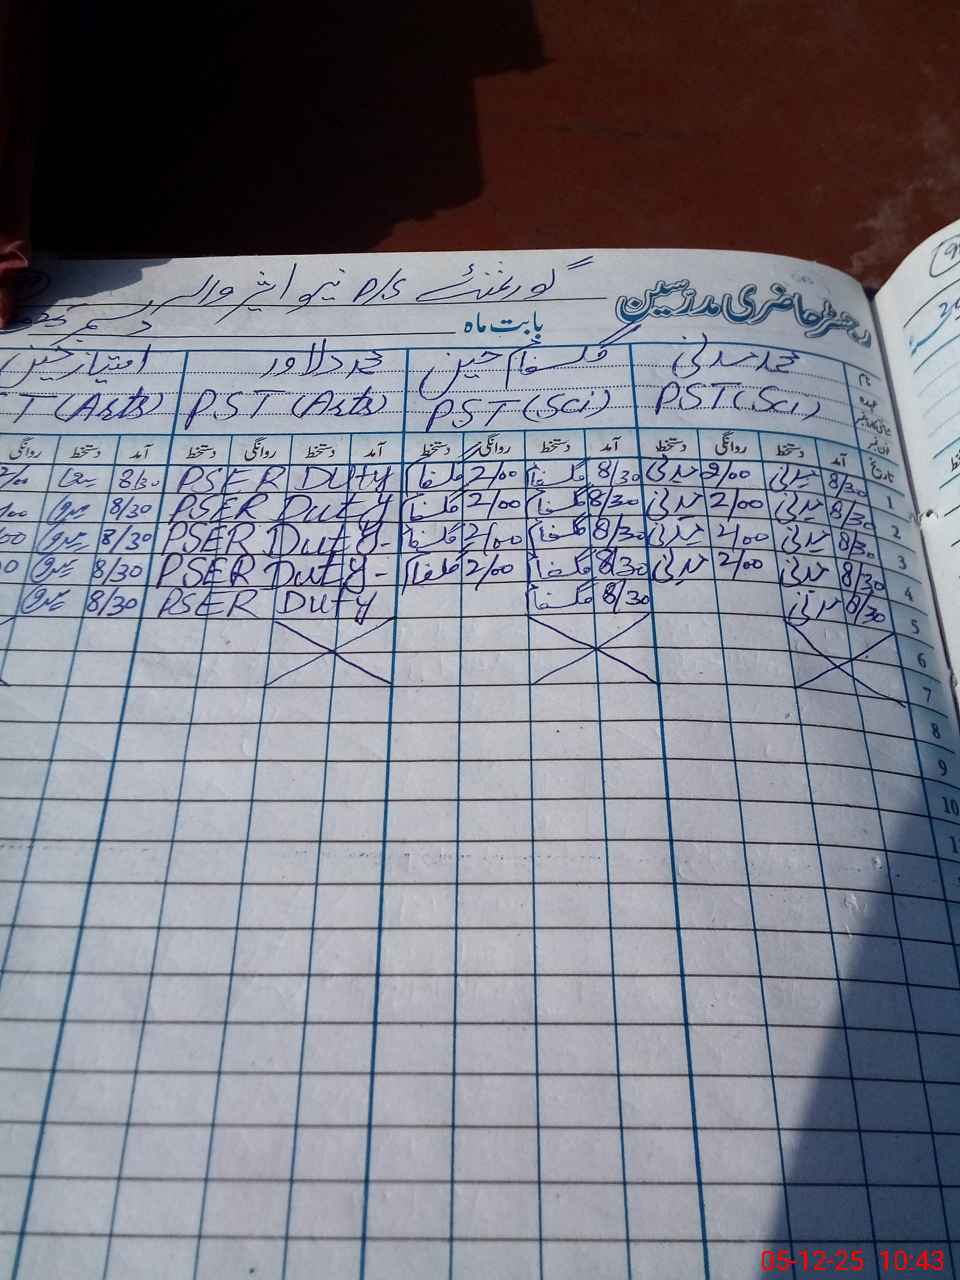 گورنمنٹ P/S نیو
رجسٹر حاضری مدرسین
بابت ماہ دسمبر
نام محمد مدنی گلفام حسین محمد دلاور امتیاز حسین
عہدہ PST (Sci) PST (Sci) PST (Arts) T (Arts)
تاریخ آمد دستخط روانگی دستخط آمد دستخط روانگی دستخط آمد دستخط روانگی دستخط آمد دستخط روانگی
1 8/30 مدنی 2/00 مدنی 8/30 گلفام 2/00 گلفام PSER DUTY 8/30
2 8/30 مدنی 2/00 مدنی 8/30 گلفام 2/00 گلفام PSER DUTY 8/30
3 8/30 مدنی 2/00 مدنی 8/30 گلفام 2/00 گلفام PSER DUTY- 8/30
4 8/30 مدنی 2/00 مدنی 8/30 گلفام 2/00 گلفام PSER DUTY- 8/30
5 8/30 مدنی 8/30 گلفام PSER DUTY 8/30
6
7
8
9
10
05-12-25 10:43